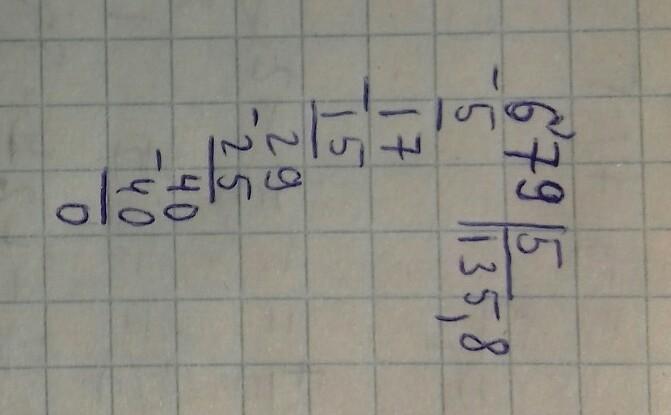 679 | 5
- 5 | 135,8
17
- 15
29
- 25
40
- 40
0